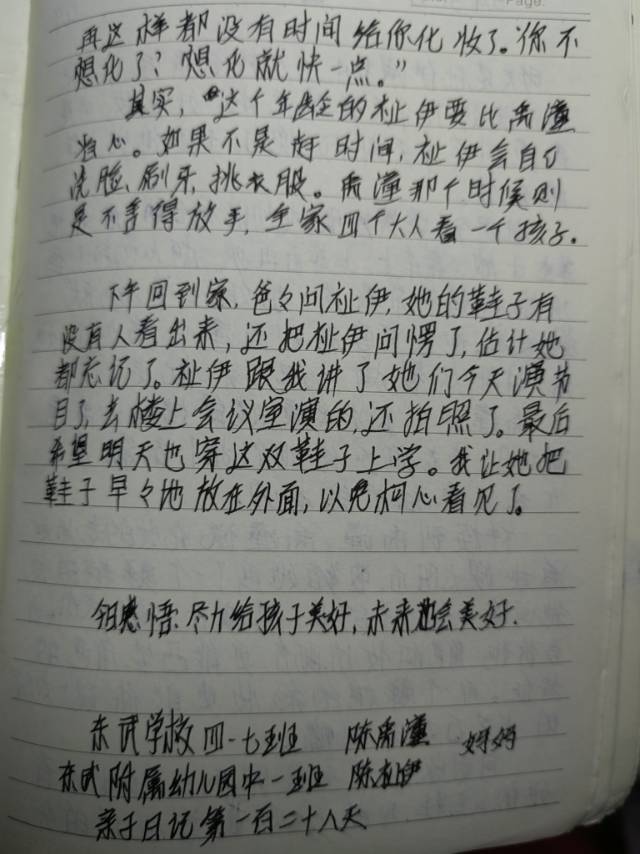 再这样都没有时间给你化妆了。你不
想化了?想化就快一点。”
其实,这个年龄的祉伊要比禹潼
省心。如果不是赶时间,祉伊会自己
洗脸、刷牙、挑衣服。禹潼那个时候则
是不舍得放手,全家四个大人看一个孩子。
下午回到家,爸々问祉伊,她的鞋子有
没有人看出来,还把祉伊问愣了,估计她
都忘记了。祉伊跟我讲了她们今天演节
目了,去楼上会议室演的,还拍照了。最后
希望明天也穿这双鞋子上学。我让她把
鞋子早々地放在外面,以免柯心看见了。
感悟:尽力给孩子美好,未来都会美好.
东武学校四·七班 陈禹潼 妈妈
东武附属幼儿园中一班 陈祉伊
亲子日记第一百二十八天